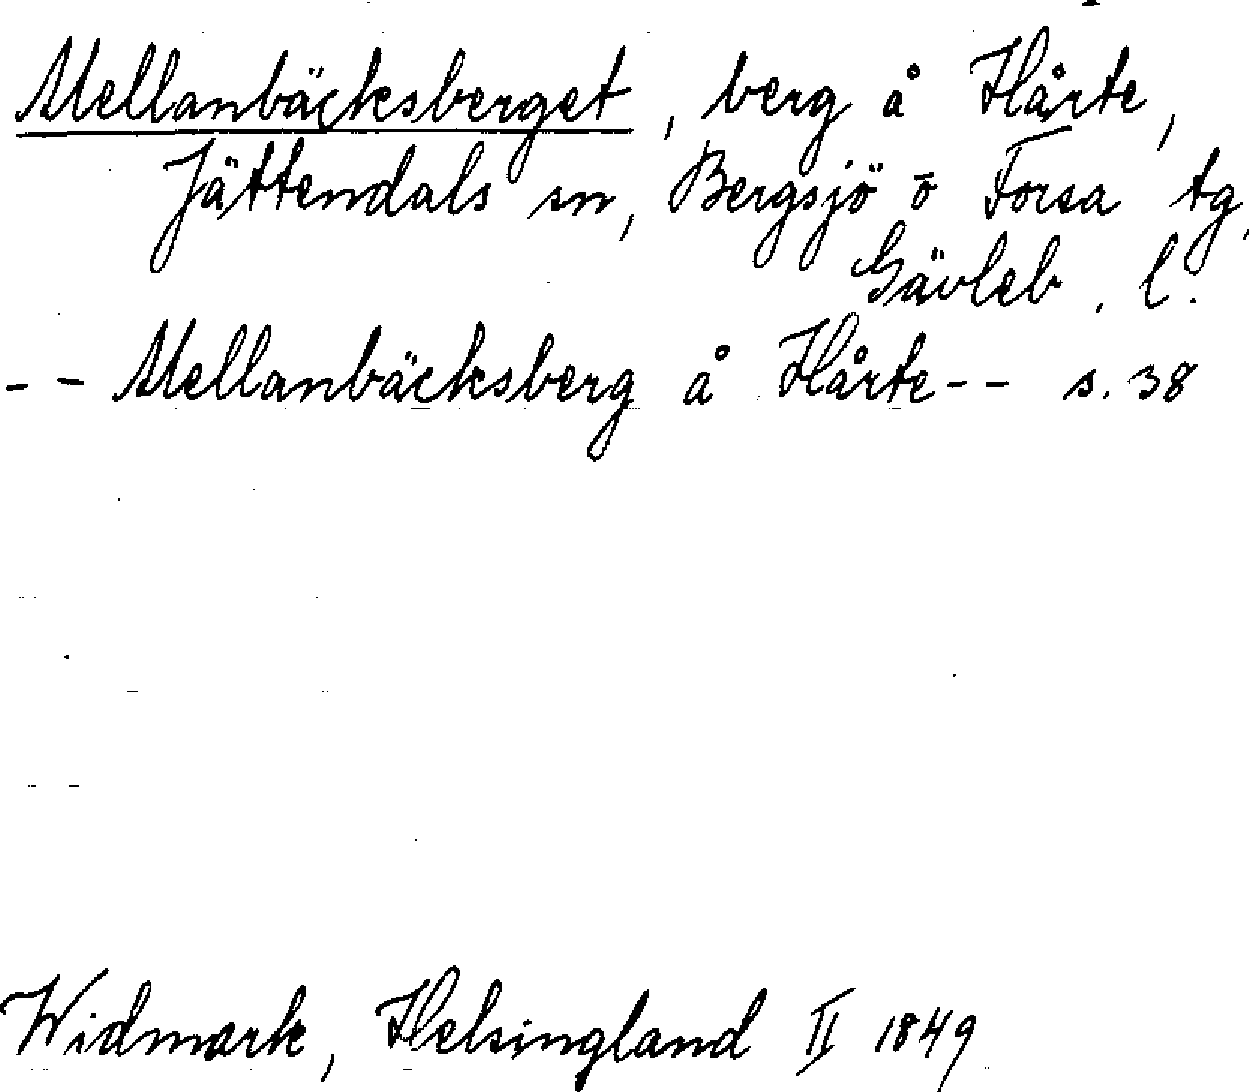 Mellanbäcksberget, berg å Hårte,
Jättendals sn, Bergsjö o Forsa tg,
Gävleb. l.
-- Mellanbäcksberg å Hårte -- s. 38
Widmark, Helsingland II 1849